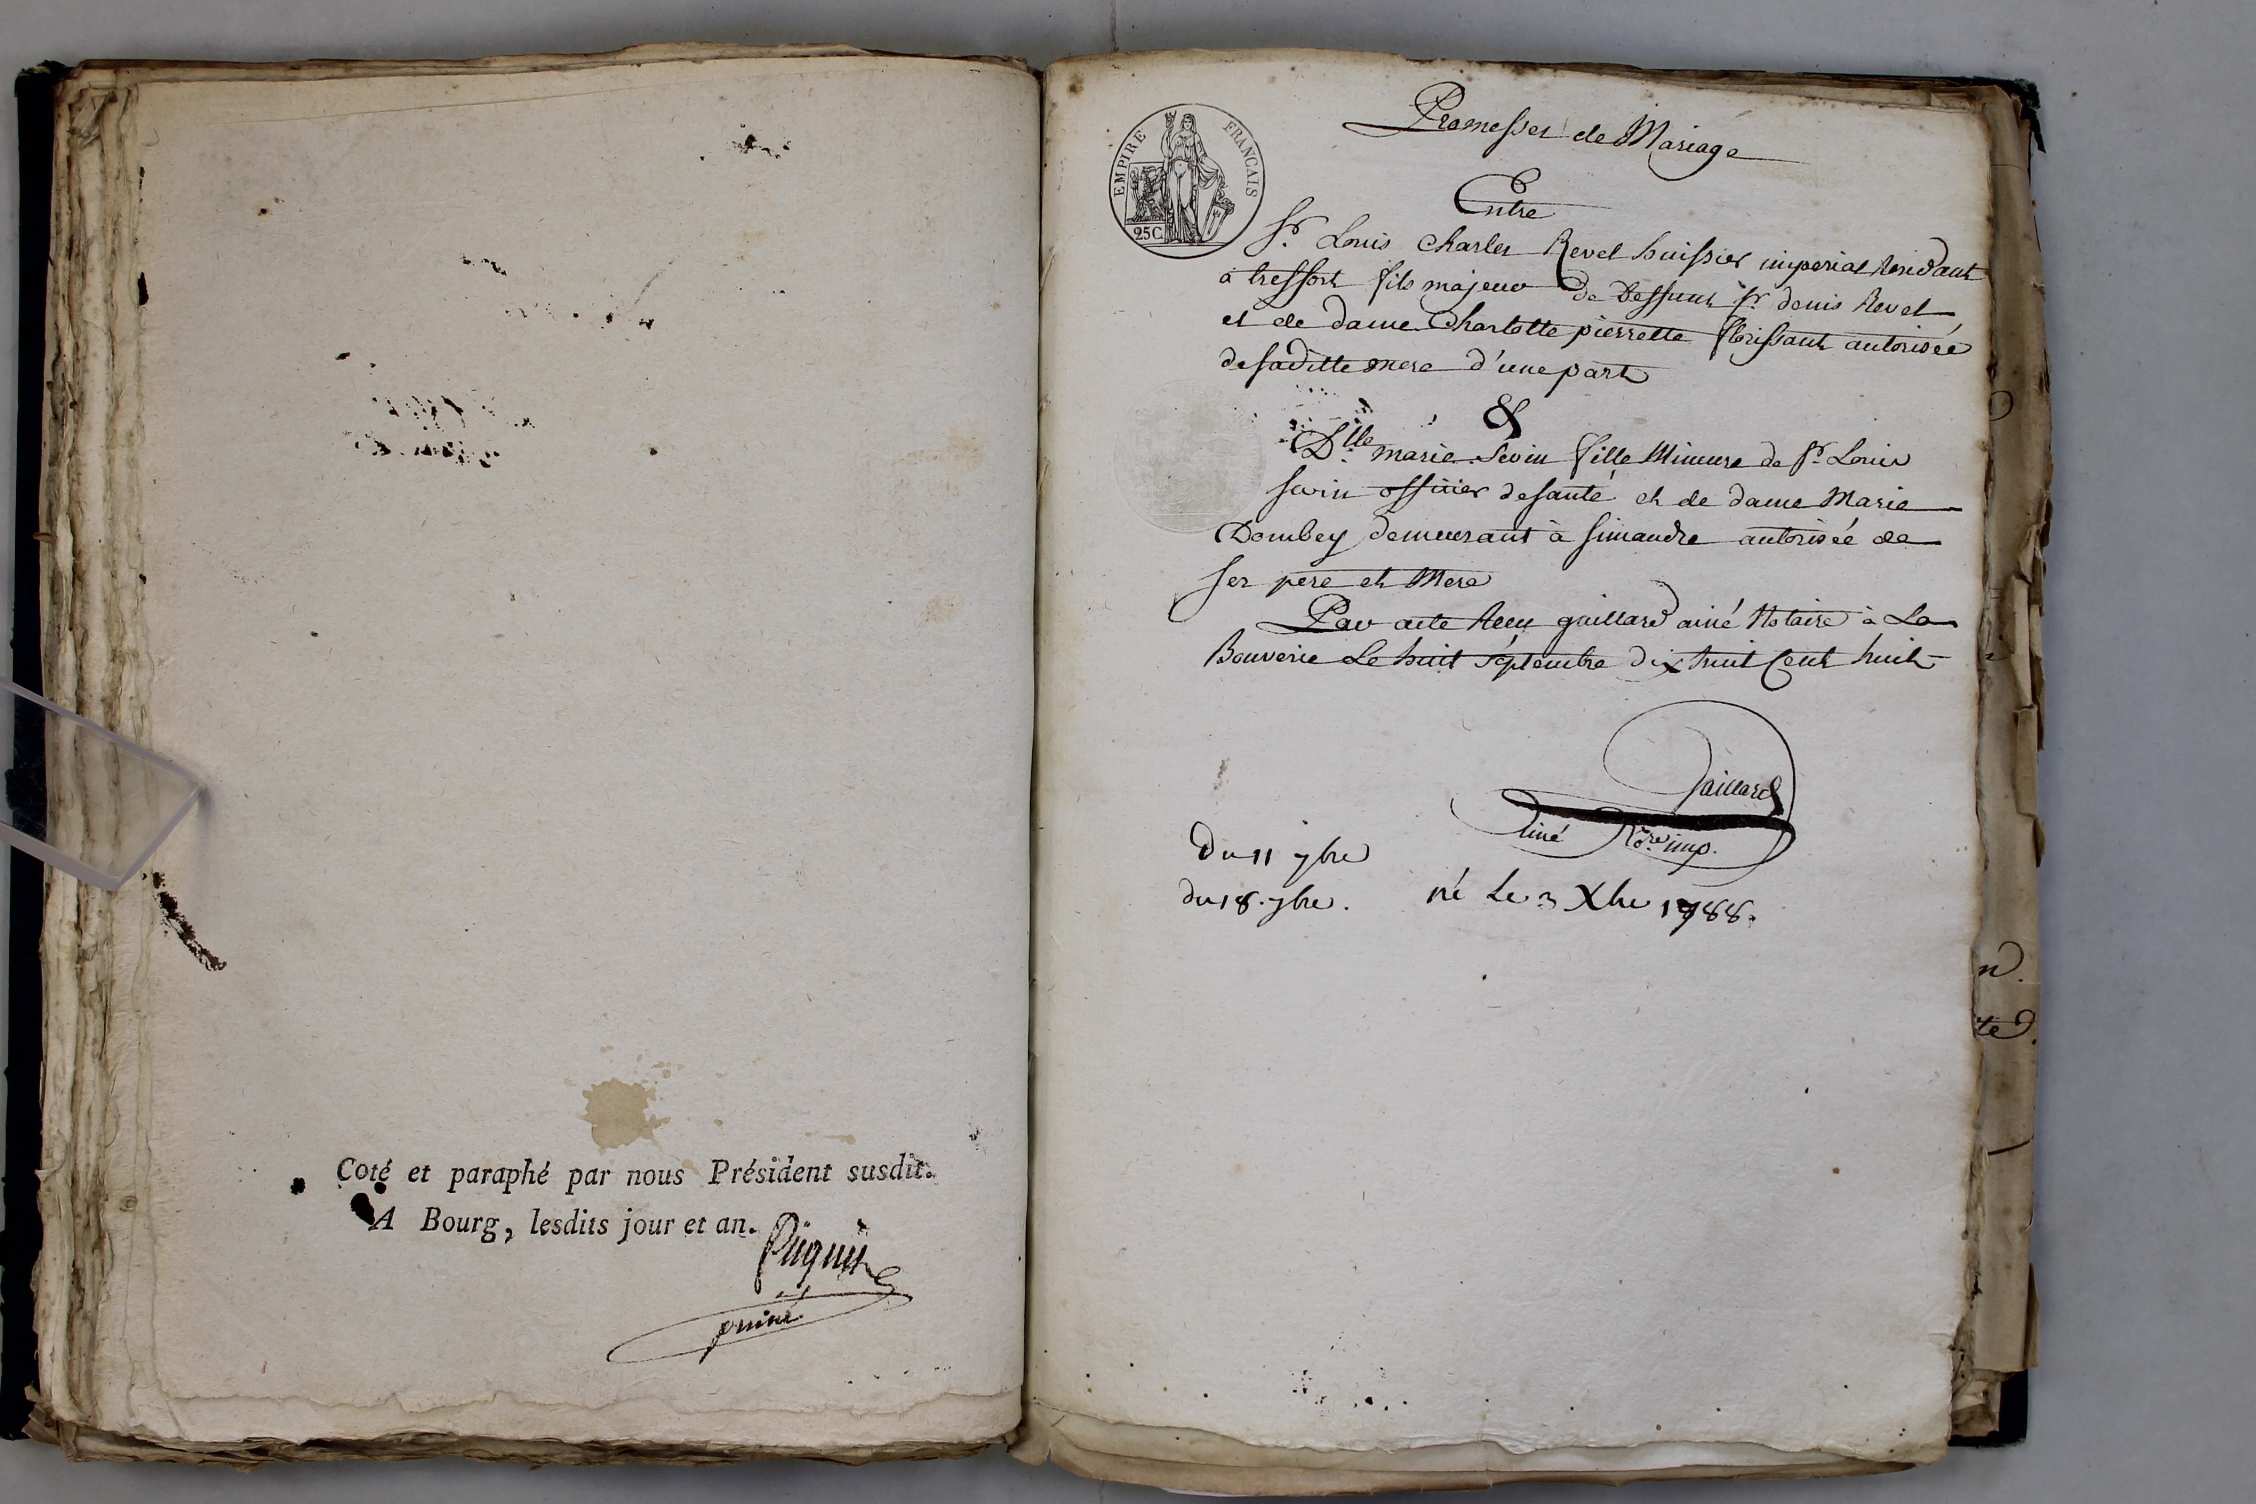 Coté et paraphé par nous Président susdit.
A Bourg, lesdits jour et an.
puiné
EMPIRE FRANCAIS
25C
Promesses de Mariage
Entre
Sr. Louis Charles Revel huissier imperial residant
a tressort fils majeur de Deffunt Sr denis Revel
et de dame Charlotte pierrette florissant autorisée
de saditte mere d'une part
&
Dlle. marie Sevin fille Mineure de Sr. Louis
sevin officier de santé et de dame Marie
Dombey demeurant à simandre autorisée de
ses pere et Mere
Par acte Recu gaillard ainé Notaire à La
Bouverie Le huit septembre dix huit Cent huit
Gaillard
ainé Nore. imp.
Du 11 7bre
du 18. 7bre. né le 3 Xbre 1788.
n.
te.